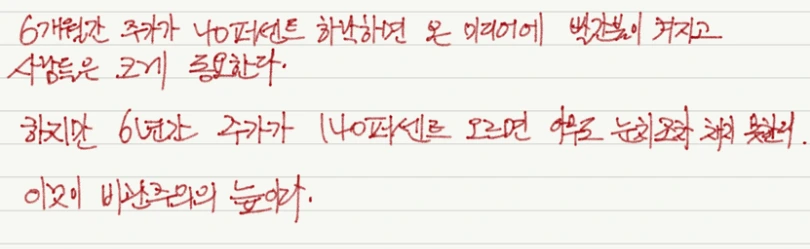 6개월간 주가가 40퍼센트 하락하면 온 미디어에 빨간불이 켜지고
사람들은 크게 동요한다.
하지만 6년간 주가가 140퍼센트 오르면 아무도 눈치조차 채지 못한다.
이것이 비관주의의 늪이다.